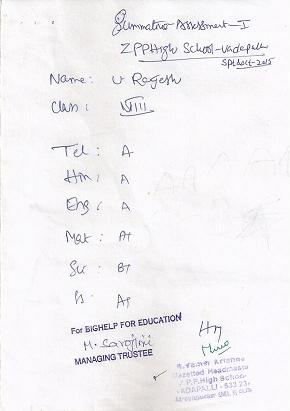 Summative-Assessment-I
ZPPHigh School-Vadapalli
Sptoct-2015
Name: V Rajesh
Class: VIII
Tel: A
Hin: A
Eng: A
Mat: A+
Sci: B+
A+
For BIGHELP FOR EDUCATION
M. Sarojini
MANAGING TRUSTEE
Gazetted Headmaste
P.P.High School